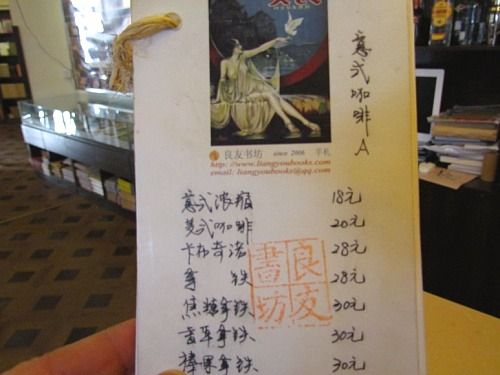 意式咖啡 A
良友书坊 since 2006 手札
http://www.liangyoubooks.com
email: liangyoubooks@qq.com
意式浓缩 18元
美式咖啡 20元
卡布奇诺 28元
拿铁 28元
焦糖拿铁 30元
香草拿铁 30元
榛果拿铁 30元
良友書坊